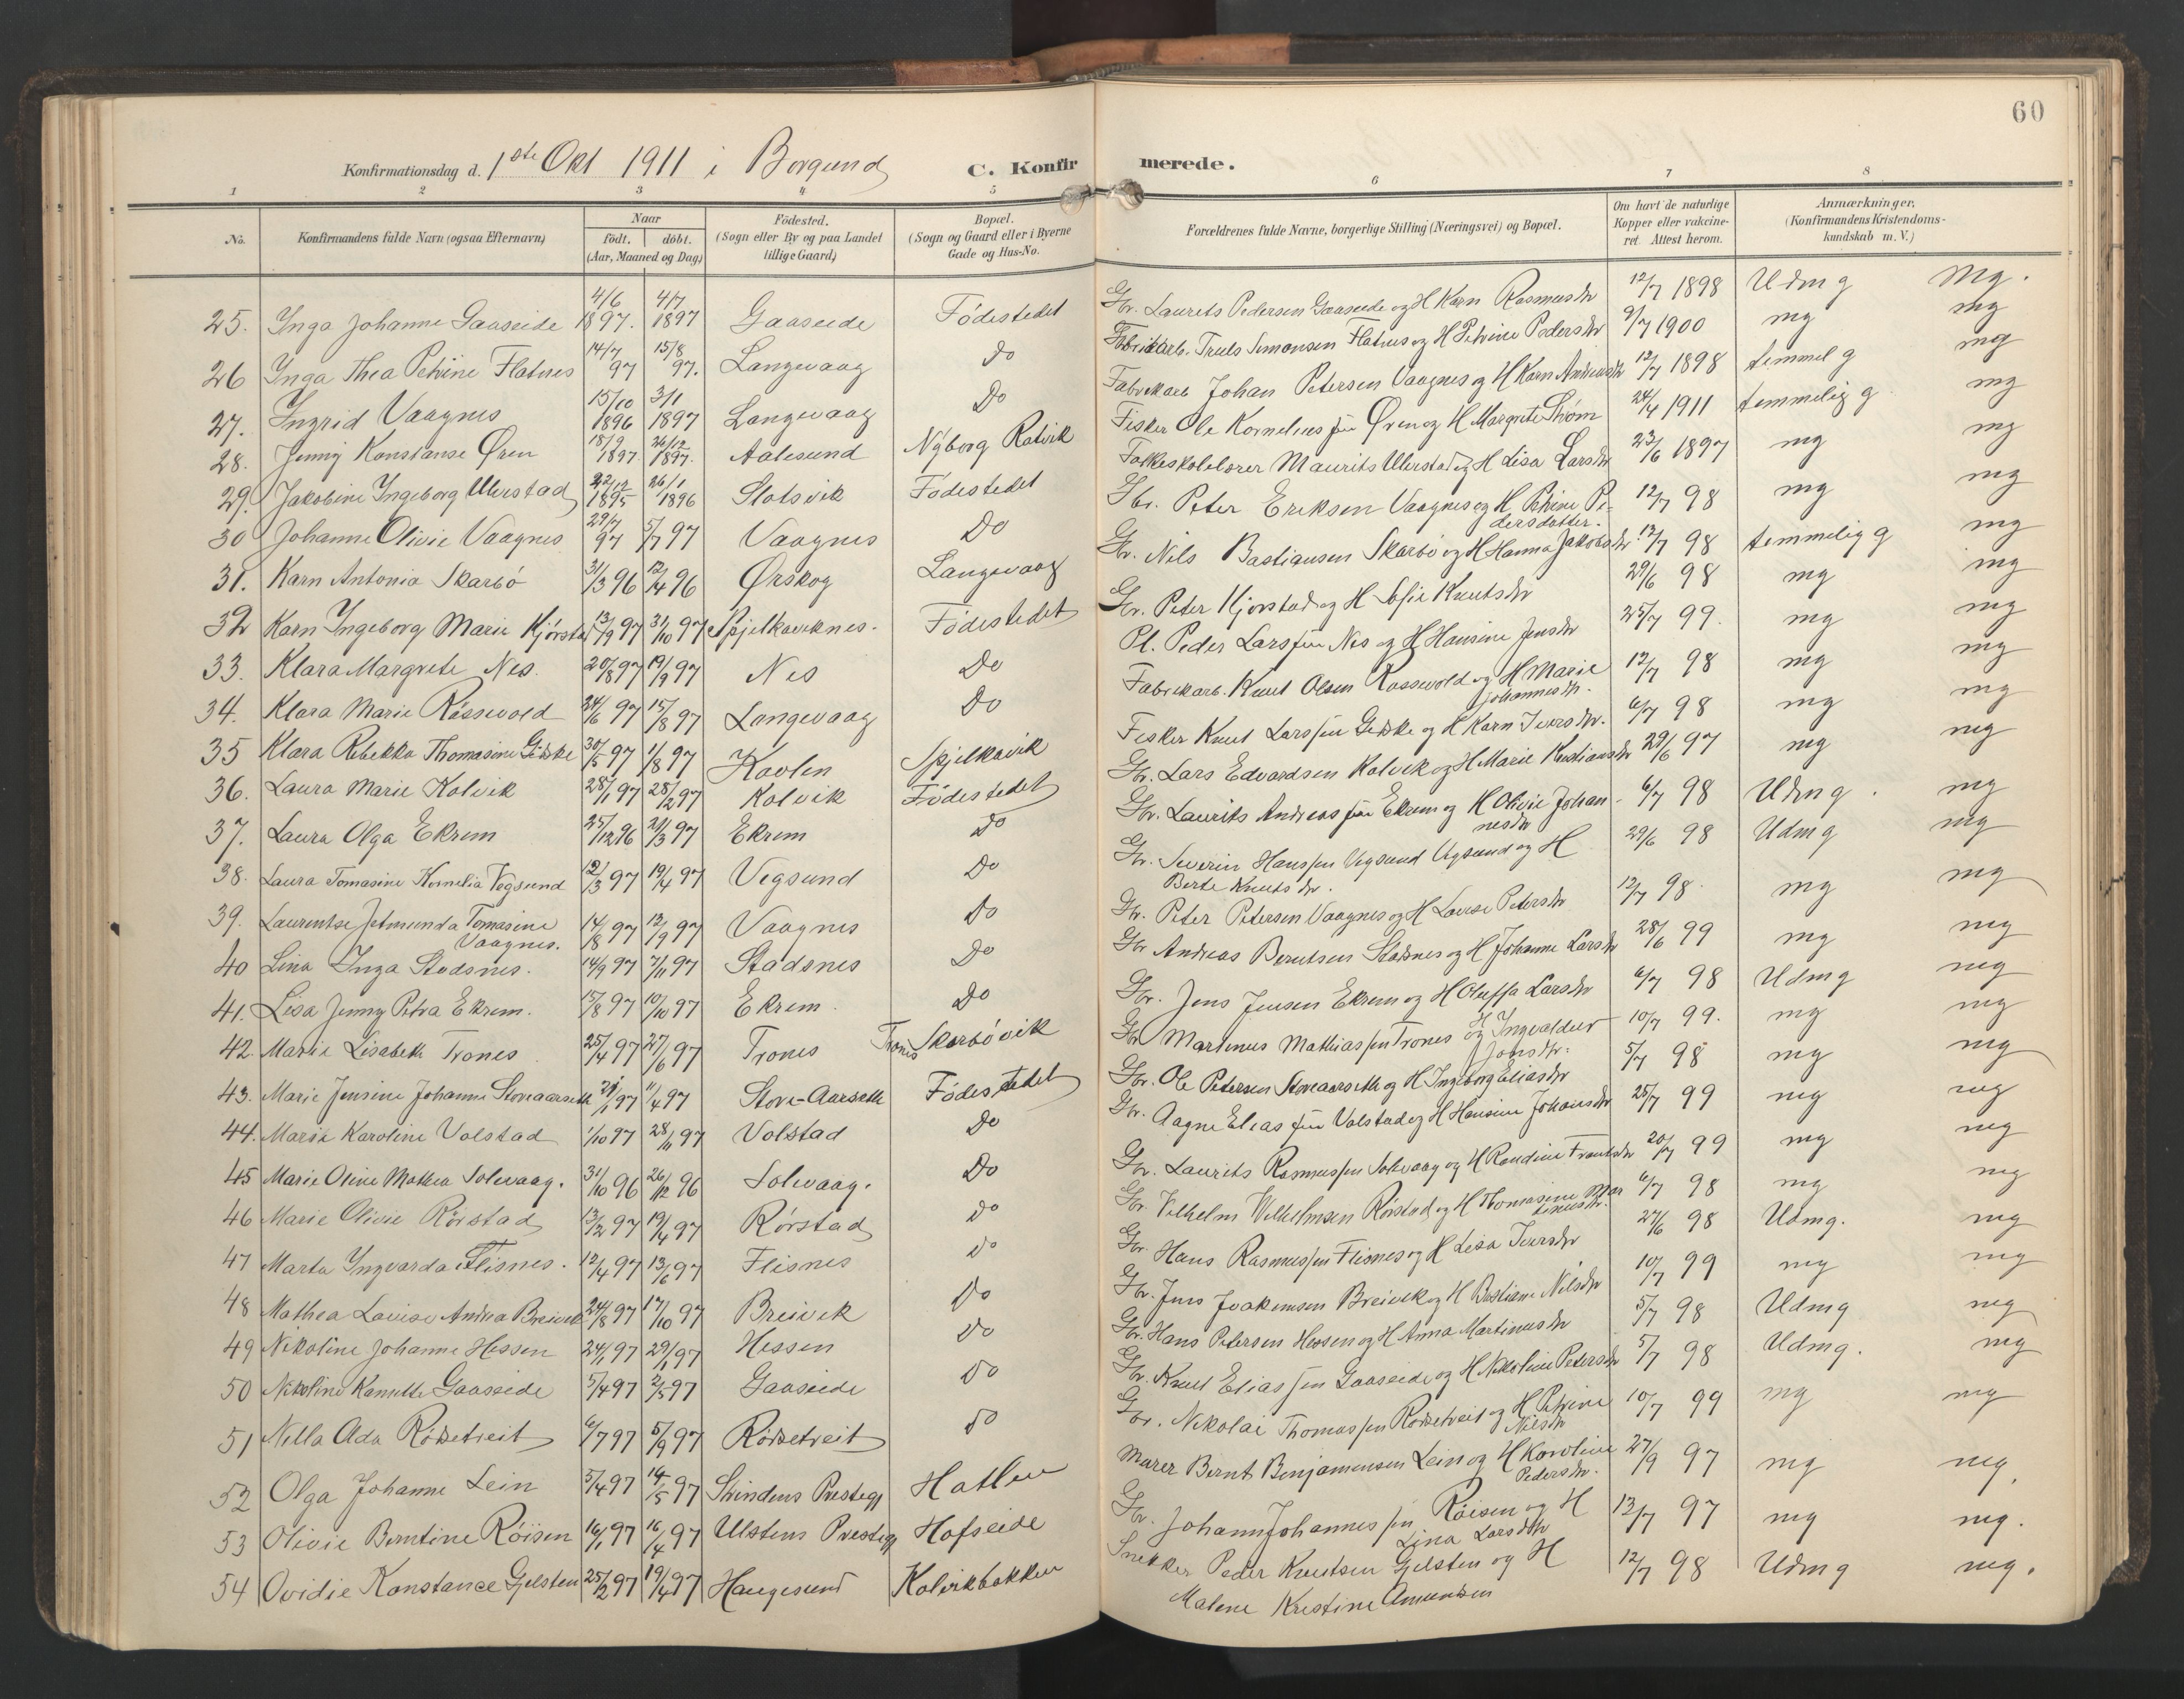 60
Konfirmationsdag d. 1ste Okt 1911 i Borgund C. Konfirmerede.
1 2 3 4 5 6 7 8
No. Konfirmandens fulde Navn (ogsaa Efternavn) Naar födt. döbt. (Aar, Maaned og Dag) Födested. (Sogn eller By og paa Landet tillige Gaard) Bopæl. (Sogn og Gaard eller i Byerne Gade og Hus-No. Forældrenes fulde Navne, borgerlige Stilling (Næringsvei) og Bopæl. Om havt de naturlige Kopper eller vakcineret. Attest herom. Anmærkninger. (Konfirmandens Kristendomskundskab m. V.)
25. Inga Johanne Gaaseide 4/6 1897. 4/7 1897 Gaaseide Födestedet Gbr. Laurits Pedersen Gaaseide og H Karn Rasmusdtr 12/7 1898 Udm g mg.
26 Inga Thea Petrine Flatnes 14/7 97 15/8 97. Langevaag Do Fabrikarb. Truls Simonsen Flatnes og H Petrine Pedersdtr 9/7 1900 mg mg
27. Ingrid Vaagnes 15/10 1896 3/1 1897 Langevaag Do Fabrikarb Johan Petersen Vaagnes og H Karn Andreasdtr 12/7 1898 temmel g mg
28. Jenny Konstanse Øren 18/9 1897. 26/12 1897. Aalesund Nyborg Ratvik Fisker Ole Kornelius sen Øren og H Margrete Strøm 24/4 1911 temmelig g mg
29. Jakobine Ingeborg Ulerstad 22/12 1895 26/1 1896 Slotsvik Födestedet Folkeskolelærer Maurits Ulerstad og H Lisa Larsdtr 23/6 1897 mg mg
30 Johanne Olivie Vaagnes 29/4 97 5/7 97 Vaagnes Do Gbr. Peter Eriksen Vaagnes og H Petrine Pedersdatter. 12/7 98 mg mg
31. Karn Antonia Skarbö 31/3 96 12/4 96 Ørskog Langevaag Gbr. Nils Bastiansen Skarbö og H Hanna Jakobsdtr. 12/7 98 temmelig g mg
32 Karn Ingeborg Marie Kjörstad 13/9 97 31/10 97 Spjelkaviknes. Födestedet Gbr. Peter Kjörstad og H Sofie Knutsdtr 29/6 98 mg mg
33. Klara Margrete Nes. 20/8 97 19/9 97 Nes Do Pl. Peder Larssen Nes og H Hansine Jensdtr 25/7 99. mg mg
34. Klara Marie Rössevold 24/6 97 15/8 97 Langevaag Do Fabrikarb. Knut Olsen Rossevold og H Marie Johannesdtr. 12/7 98 mg mg
35 Klara Rebekka Thomasine Giske 30/5 97 1/8 97 Kavlen Spjelkavik Fisker Knut Larssen Giske og H Karn Iversdtr. 6/7 98 mg mg
36. Laura Marie Kolvik 28/1 97 28/2 97 Kolvik Födestedet Gbr. Lars Edvardsen Kolvik og H Marie Kristiansdtr 29/6 97 mg mg
37. Laura Olga Ekrem 25/12 96 21/3 97 Ekrem Do Gbr. Laurits Andreassen Ekrem og H Olivie Johannesdtr 6/7 98 Udm g mg
38. Laura Tomasine Kornelia Vegsund 12/3 97 19/4 97 Vegsund Do Gbr. Severin Hanssen Vegsund Vegsund og H Berte Knutsdtr. 29/6 98 Udm g mg
39. Laurentse Jetmunda Tomasine Vaagnes. 14/8 97 12/9 97 Vaagnes Do Gbr. Peter Petersen Vaagnes og H Lovise Petersdtr 12/7 98. mg mg
40 Lina Inga Stadsnes. 14/9 97 7/11 97 Stadsnes Do Gbr Andreas Berntsen Stadsnes og H Johanne Larsdtr 28/6 99 mg mg
41. Lisa Jenny Petra Ekrem. 15/8 97 10/10 97 Ekrem Do Gbr. Jens Jensen Ekrem og H Oluffa Larsdtr 6/7 98 Udm g mg
42. Marie Lisabeth Trones 25/4 97 27/6 97 Trones Trones Skarbövik Gbr Martinus Mathiassen Trones og H Ingvaldur Jonsdtr. 10/7 99. mg mg
43. Marie Jensine Johanne Storeaarseth 21/1 97 11/4 97 Store-Aarseth Födestedet Gbr. Ole Petersen Storeaarseth og H Ingeborg Eliasdtr 5/7 98 mg mg
44. Marie Karoline Volstad 1/10 97 28/11 97 Volstad Do Gbr. Aagne Eliassen Valstad og H Hansine Johansdtr 25/7 99 mg mg
45 Marie Oline Mathea Solevaag. 31/10 96 26/12 96 Solevaag. Do Gbr. Laurits Rasmussen Solevaag og H Randine Frantsdtr 20/7 99 mg mg
46 Marie Olivie Rörstad 13/2 97 19/4 97 Rörstad Do Gbr. Vilhelm Vilhelmsen Rörstad og H Thomasine Martinusdtr. 6/7 98 mg mg
47 Marta Ingvarda Flisnes. 12/4 97 13/6 97 Flisnes Do Gbr. Hans Rasmussen Flisnes og H Lisa Iversdtr 27/6 98 Udmg. mg
48 Mathea Lovise Andrea Breivik 24/8 97 17/10 97 Breivik Do Gbr. Jens Joakimsen Breivik og H Bastiane Nilsdtr 10/7 99 mg mg
49 Nikoline Johanne Hessen 24/1 97 29/1 97 Hessen Do Gbr. Hans Petersen Hessen og H Anna Martinusdtr 5/7 98 Udm g mg
50 Nikoline Kanutte Gaaseide 5/4 97 2/5 97 Gaaseide Do Gbr. Knut Eliassen Gaaseide og H Nikoline Petersdtr 5/7 98 Udmg. mg
51 Nella Ada Rödsetreit 6/7 97 5/9 97 Rödsetreit Do Gbr. Nikolai Thomassen Rödsetreit og H Petrine Nilsdtr 10/7 99 mg mg
52 Olga Johanne Lein 5/4 97 14/5 97 Strindens Prestegj Hatlen Murer Bernt Benjaminsen Lein og H Karoline Pedersdtr. 27/9 97 mg mg.
53 Olivie Berntine Röisen 16/1 97 16/4 97 Ulstens Prestegj Hofseide Gbr. Johann Johannessen Röisen og H Lina Larsdtr 13/7 97 mg mg.
54 Ovidie Konstance Gjelsten 25/2 97 19/4 97 Haugesund Kolvikbakken Snekker Peder Knutsen Gjelsten og H Malene Kristine Amundsen 12/7 98 Udm g mg.